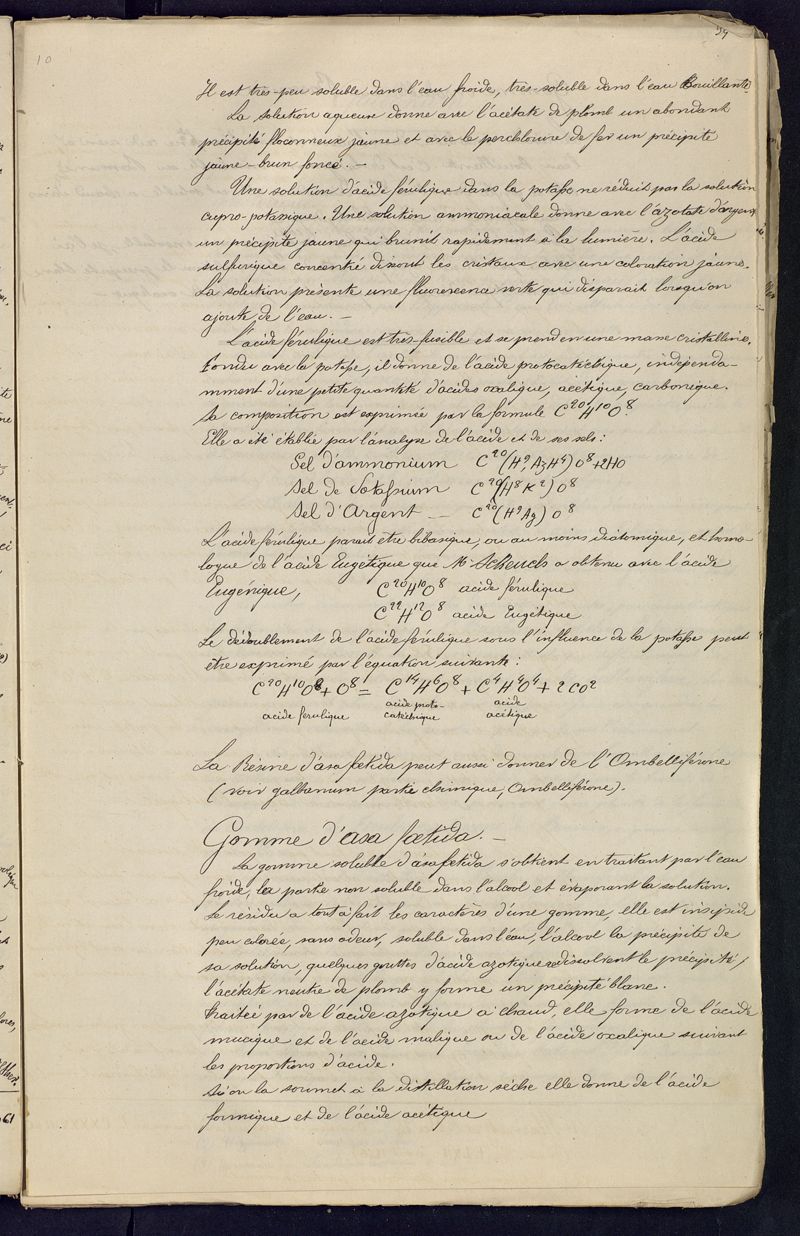 10
Il est très-peu soluble dans l'eau froide, très-soluble dans l'eau Bouillante.
La solution aqueuse donne avec l'acétate de plomb un abondant
précipité floconneux jaune et avec le perchlorure de fer un précipité
jaune-brun foncé. —
Une solution d'acide férulique dans la potasse ne réduit pas la solution
cupro-potassique. Une solution ammoniacale donne avec l'azotate d'argent
un précipité jaune qui brunit rapidement à la lumière. L'acide
sulfurique concentré dissout les cristaux avec une coloration jaune.
La solution présente une fluorescence verte qui disparait lorsqu'on
ajoute de l'eau. —
L'acide férulique est très-fusible et se prend en une masse cristalline.
Fondu avec la potasse, il donne de l'acide protocatéchique, indépenda-
mment d'une petite quantité d'acides oxalique, acétique, carbonique.
Sa composition est exprimée par la formule C²⁰H¹⁰O⁸.
Elle a été établie par l'analyse de l'acide et de ses sels:
Sel d'ammonium C²⁰(H⁹, AzH⁴)O⁸+2HO
Sel de Potassium C²⁰(H⁸K²)O⁸
Sel d'Argent — C²⁰(H⁹Ag)O⁸
L'acide férulique parait être bibasique, ou au moins diatomique, et homo-
logue de l'acide Eugétique que M. Scheuch a obtenu avec l'acide
Eugénique, C²⁰H¹⁰O⁸ acide férulique
C²²H¹²O⁸ acide Eugétique
Le dédoublement de l'acide férulique sous l'influence de la potasse peut
être exprimé par l'équation suivante:
C²⁰H¹⁰O⁸ + O⁸ = C¹⁴H⁶O⁸ + C⁴H⁴O⁴ + 2CO²
acide férulique acide proto-catéchique acide acétique
La Résine d'asa fœtida peut aussi donner de l'Ombelliférone
(voir galbanum partie chimique, Ombelliférone).
Gomme d'asa fœtida. —
La gomme soluble d'asa fœtida s'obtient en traitant par l'eau
froide, la partie non soluble dans l'alcool et évaporant la solution.
Le résidu a tout à fait les caractères d'une gomme, elle est insipide
peu colorée, sans odeur, soluble dans l'eau, l'alcool la précipite de
sa solution, quelques gouttes d'acide azotique redissolvent le précipité;
l'acétate neutre de plomb y forme un précipité blanc.
traitée par de l'acide azotique à chaud, elle forme de l'acide
mucique et de l'acide malique ou de l'acide oxalique suivant
les proportions d'acide.
Si on la soumet à la distillation sèche elle donne de l'acide
formique et de l'acide acétique